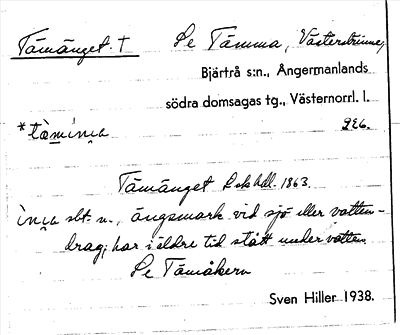 Tämänget. † Se Tämma, Västerstrinne,
Bjärtrå s:n., Ångermanlands
södra domsagas tg., Västernorrl. l.
*tämi̯nɡa 226.
Tämänget Lskhdl. 1863.
sbt. n., ängsmark vid sjö eller vatten-
drag; har i äldre tid stått under vatten
Se Tämåkern
Sven Hiller 1938.